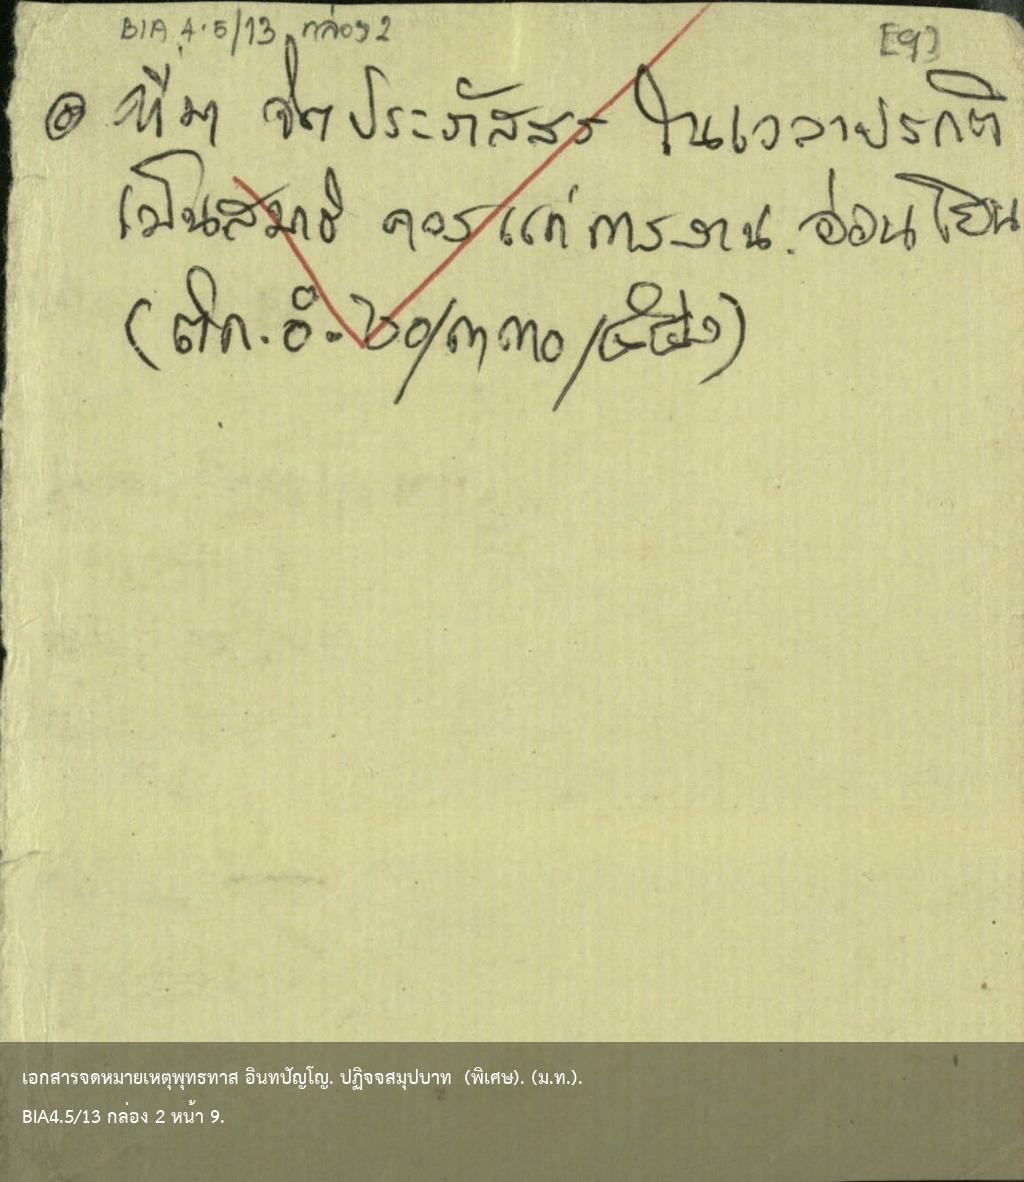 BIA 4.5/13 กล่อง 2 [9]
ที่มา จิตประภัสสร ในเวลาปรกติ
เป็นสมาธิ ควรแก่การงาน. อ่อนโยน
(ติก. อํ. ๒๐/๓๓๐/
เอกสารจดหมายเหตุพุทธทาส อินทปัญโญ. ปฏิจจสมุปบาท (พิเศษ). (ม.ท.).
BIA4.5/13 กล่อง 2 หน้า 9.